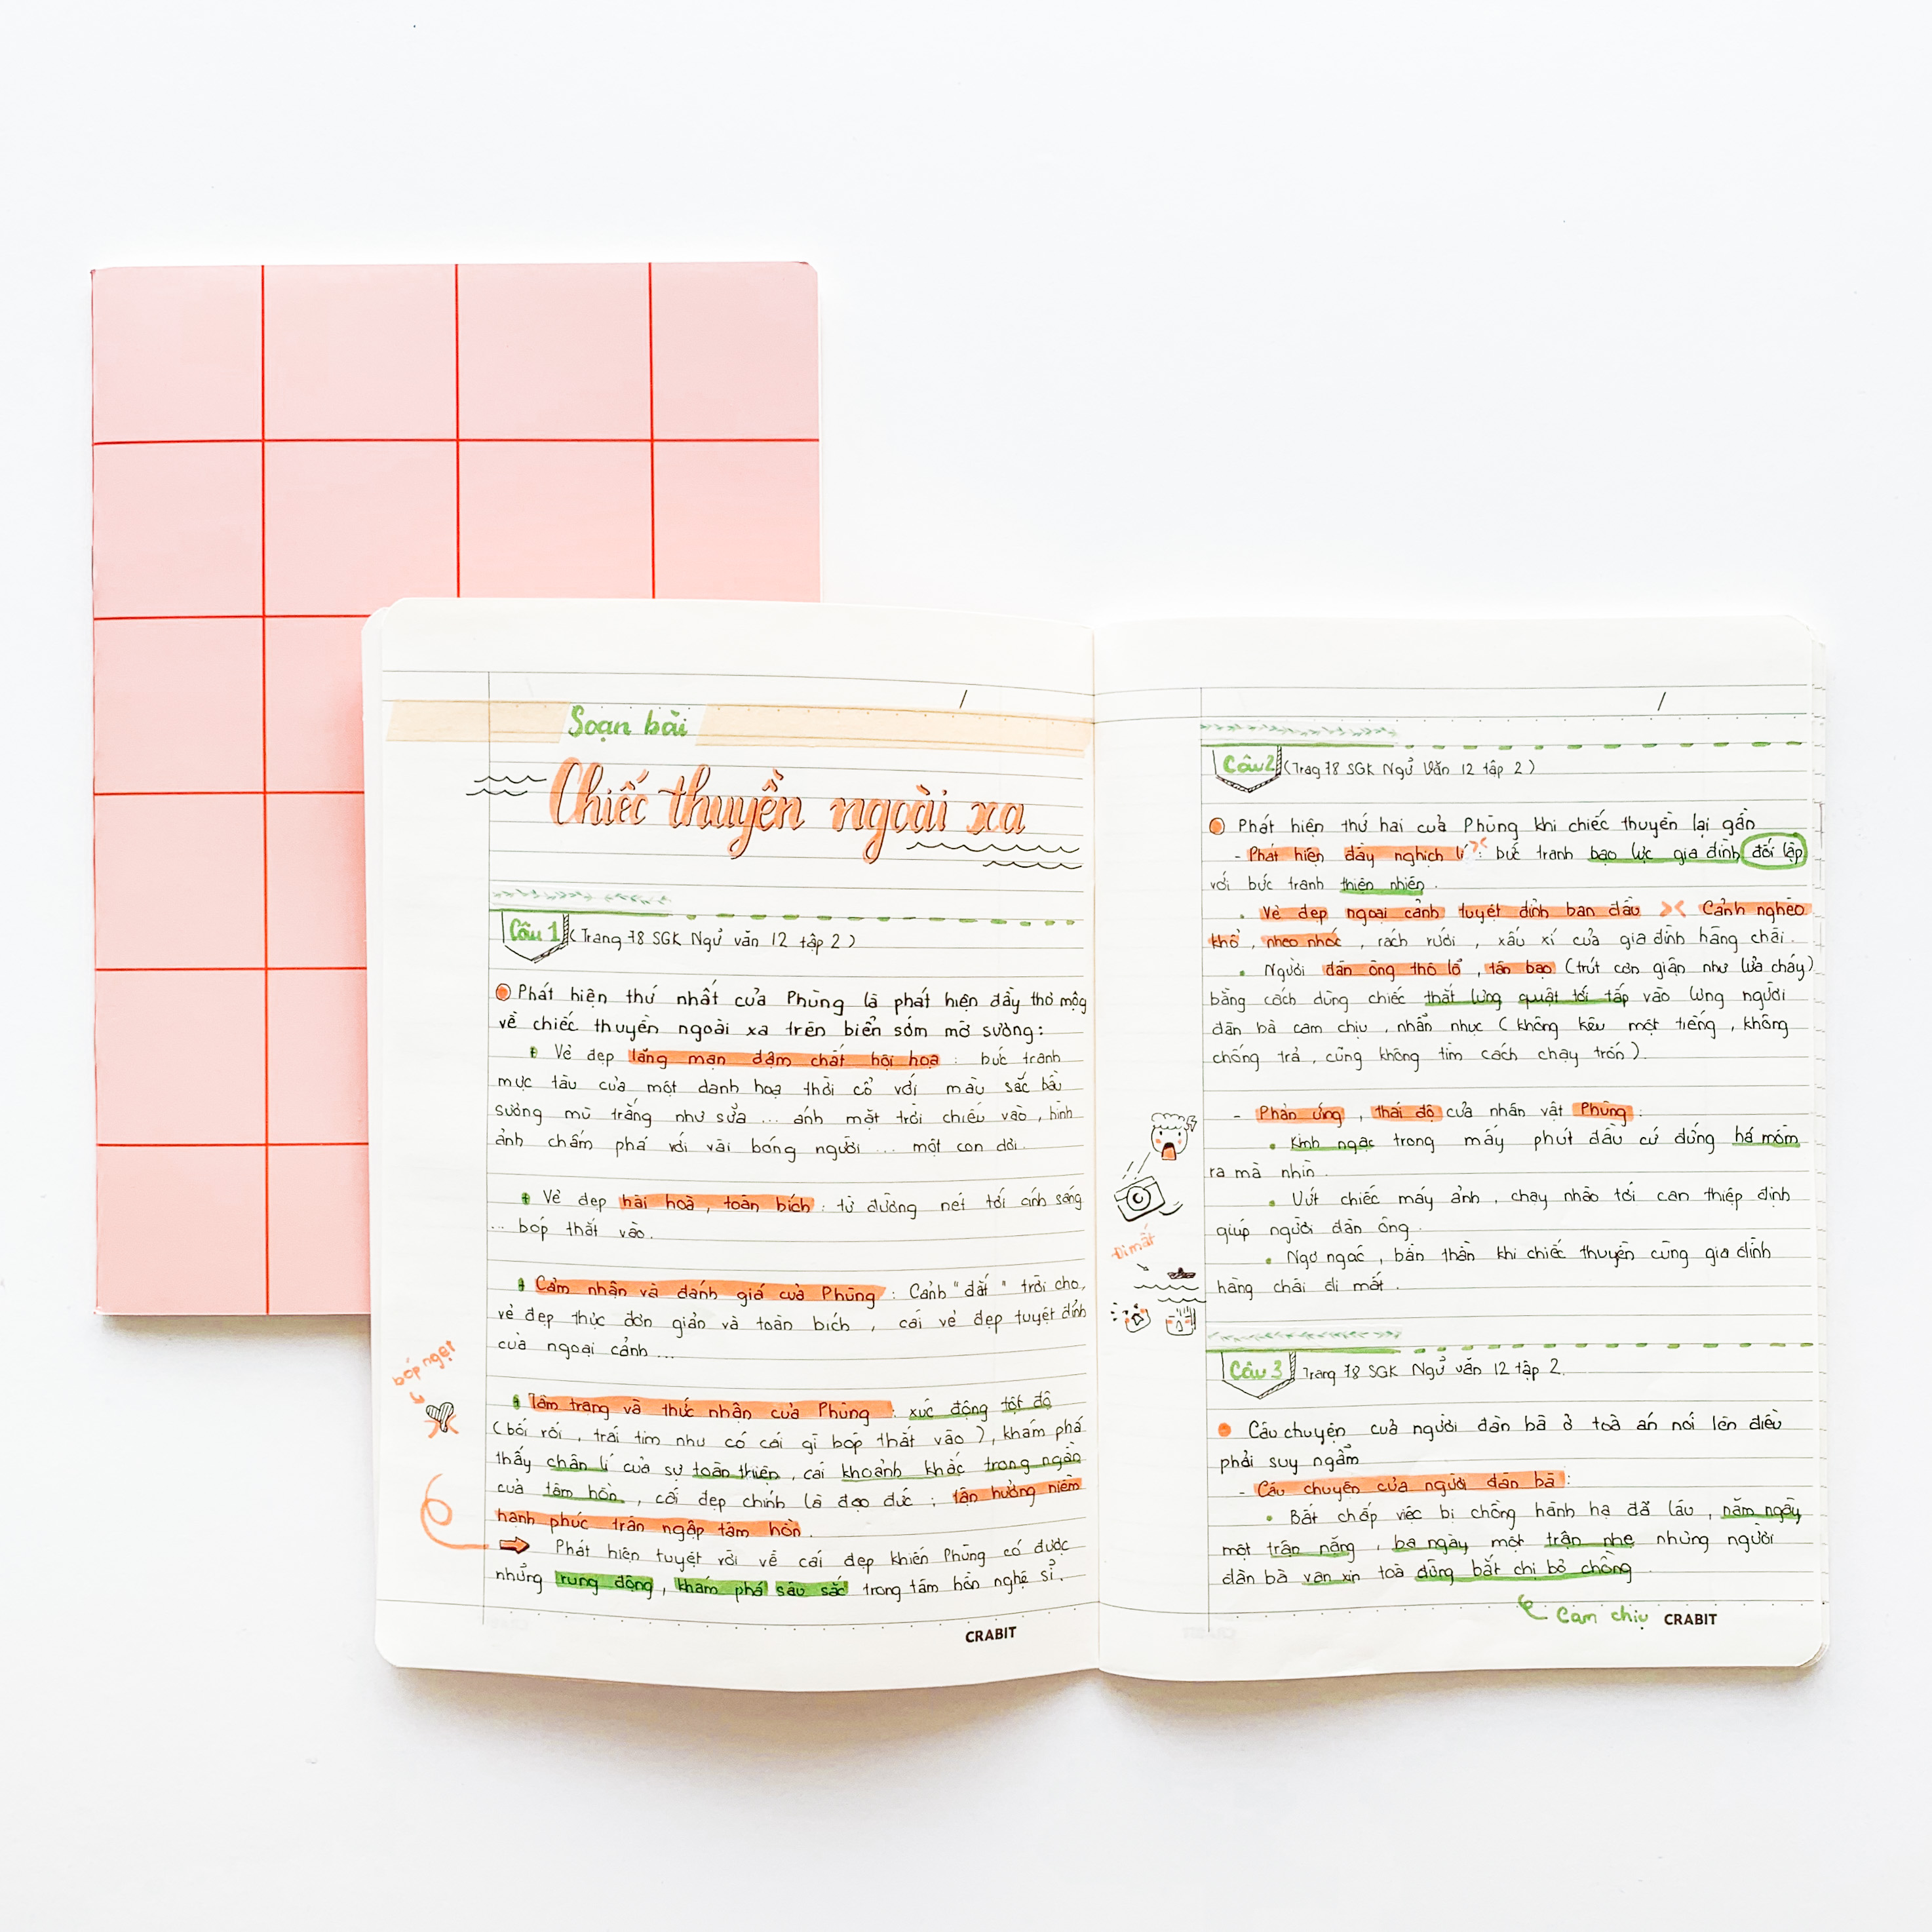 Soạn bài
Chiếc thuyền ngoài xa
Câu 1 (Trang 78 SGK Ngữ văn 12 tập 2)
Phát hiện thứ nhất của Phùng là phát hiện đầy thơ mộng
về chiếc thuyền ngoài xa trên biển sớm mờ sương:
Vẻ đẹp lãng mạn đậm chất hội hoạ : bức tranh
mực tàu của một danh hoạ thời cổ với màu sắc bầu
sương mù trắng như sữa ... ánh mặt trời chiếu vào, hình
ảnh chấm phá với vài bóng người ... một con dơi.
Vẻ đẹp hài hoà, toàn bích : từ đường nét tới ánh sáng
... bóp thắt vào.
Cảm nhận và đánh giá của Phùng : Cảnh "đắt" trời cho,
vẻ đẹp thực đơn giản và toàn bích, cái vẻ đẹp tuyệt đỉnh
của ngoại cảnh ...
bóp nghẹt
Tâm trạng và thức nhận của Phùng : xúc động tột độ
(bối rối, trái tim như có cái gì bóp thắt vào), khám phá
thấy chân lí của sự toàn thiện, cái khoảnh khắc trong ngần
của tâm hồn, cái đẹp chính là đạo đức ; tận hưởng niềm
hạnh phúc tràn ngập tâm hồn.
Phát hiện tuyệt vời về cái đẹp khiến Phùng có được
những rung động, khám phá sâu sắc trong tâm hồn nghệ sĩ.
CRABIT
Câu 2 (Trag 78 SGK Ngữ Văn 12 tập 2)
Phát hiện thứ hai của Phùng khi chiếc thuyền lại gần
- Phát hiện đầy nghịch lí : bức tranh bạo lực gia đình đối lập
với bức tranh thiên nhiên.
Vẻ đẹp ngoại cảnh tuyệt đỉnh ban đầu >< Cảnh nghèo
khổ, nheo nhóc, rách rưới, xấu xí của gia đình hàng chài.
Người đàn ông thô lỗ, tàn bạo (trút cơn giận như lửa cháy)
bằng cách dùng chiếc thắt lưng quật tới tấp vào lưng người
đàn bà cam chịu, nhẫn nhục (không kêu một tiếng, không
chống trả, cũng không tìm cách chạy trốn).
- Phản ứng, thái độ của nhân vật Phùng :
Kinh ngạc trong mấy phút đầu cứ đứng há mồm
ra mà nhìn.
Vứt chiếc máy ảnh, chạy nhào tới can thiệp định
giúp người đàn ông.
Ngơ ngác, bần thần khi chiếc thuyền cùng gia đình
hàng chài đi mất.
Đi mất
Câu 3 Trang 78 SGK Ngữ văn 12 tập 2.
Câu chuyện của người đàn bà ở toà án nói lên điều
phải suy ngẫm
- Câu chuyện của người đàn bà :
Bất chấp việc bị chồng hành hạ đã lâu, năm ngày
một trận nặng, ba ngày một trận nhẹ nhưng người
đàn bà vẫn xin toà đừng bắt chị bỏ chồng.
Cam chịu
CRABIT